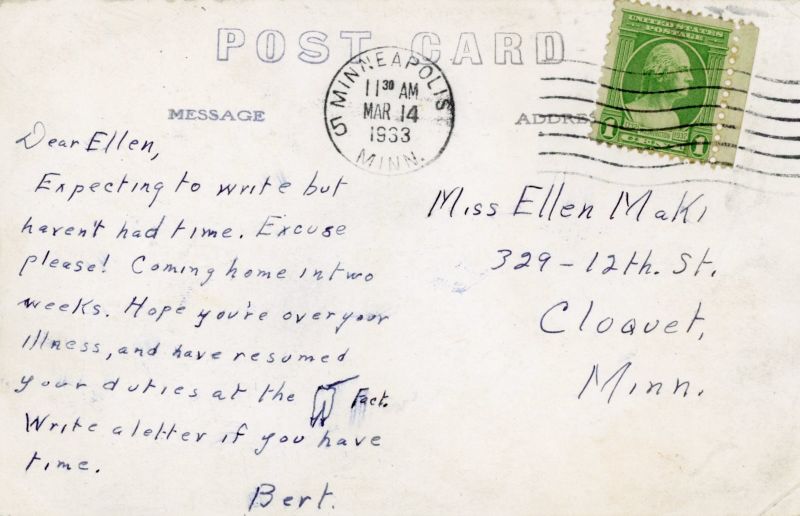 POST CARD
UNITED STATES
POSTAGE
MINNEAPOLIS
11 30 AM
MAR 14
1933
5
MINN.
1 1
MESSAGE
ADDRES
Dear Ellen,
Expecting to write but
haven't had time. Excuse
please! Coming home in two
weeks. Hope you're over your
illness, and have resumed
your duties at the Fact.
Write a letter if you have
time.
Bert.
Miss Ellen Maki
329-12th. St.
Cloquet,
Minn.